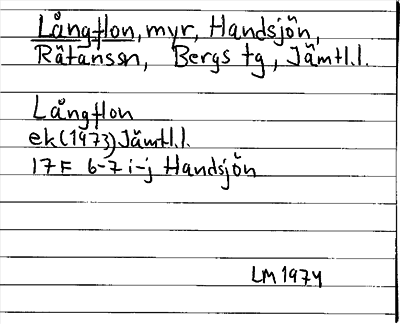 Långflon, myr, Handsjön,
Rätanssn, Bergs tg, Jämtl.l.
Långflon
ek(1973)Jämtl.l.
17F 6-7 i-j Handsjön
LM 1974